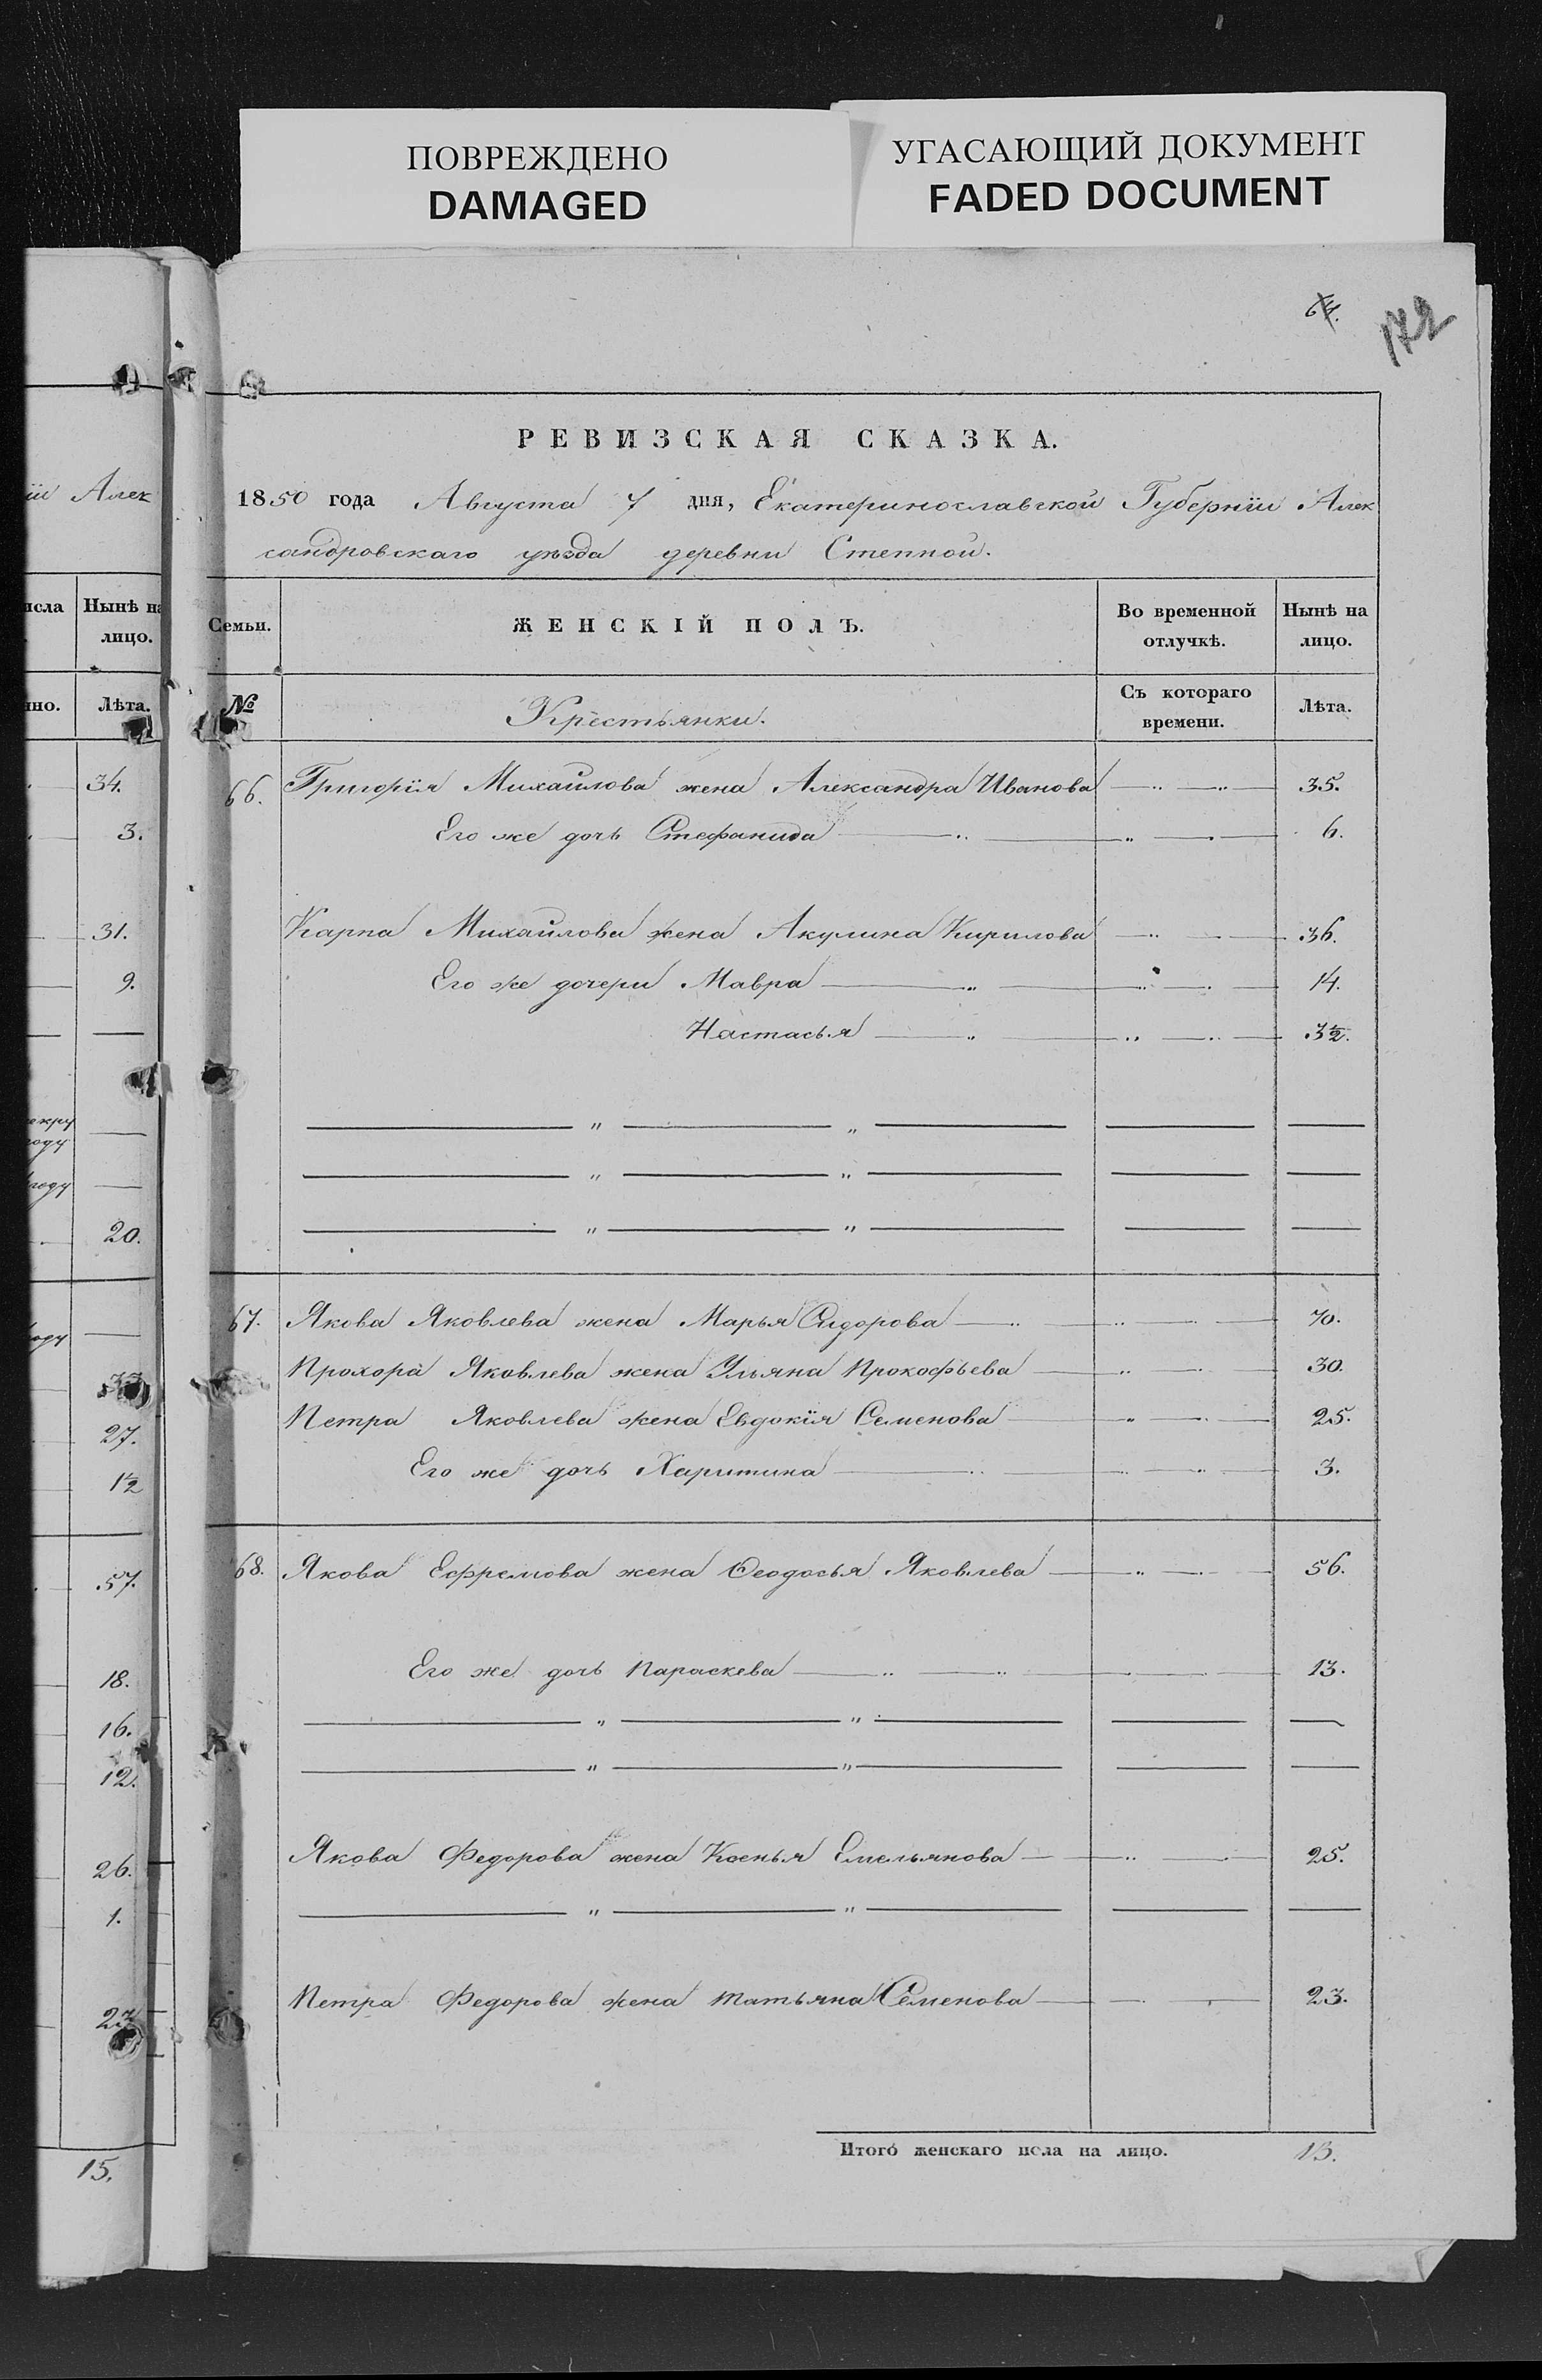 ПОВРЕЖДЕНО
DAMAGED
УГАСАЮЩИЙ ДОКУМЕНТ
FADED DOCUMENT
172
РЕВИЗСКАЯ СКАЗКА.
1850 года Августа 7 дня, Екатеринославской Губерніи Алек
сандровскаго уѣзда деревни Степной.
Семьи. ЖЕНСКІЙ ПОЛЪ. Во временной отлучкѣ. Нынѣ на лицо.
№ Крестьянки. Съ котораго времени. Лѣта.
66. Григорія Михайлова жена Александра Иванова 35.
Его же дочь Стефанида 6.
Карпа Михайлова жена Акулина Кирилова 36.
Его же дочери Мавра 14.
Настасья 3½.
67. Якова Яковлева жена Марья Сидорова 70.
Прохора Яковлева жена Ульяна Прокофьева 30.
Петра Яковлева жена Евдокія Семенова 25.
Его же дочь Харитина 3.
68. Якова Ефремова жена Ѳеодосья Яковлева 56.
Его же дочь Параскева 13.
Якова Федорова жена Ксенья Емельянова 25.
Петра Федорова жена Татьяна Семенова 23.
Итого женскаго пола на лицо. 13.
Алек
Нынѣ на
лицо.
Лѣта.
34.
3.
31.
9.
20.
27.
½
57.
18.
16.
12.
26.
1.
15.